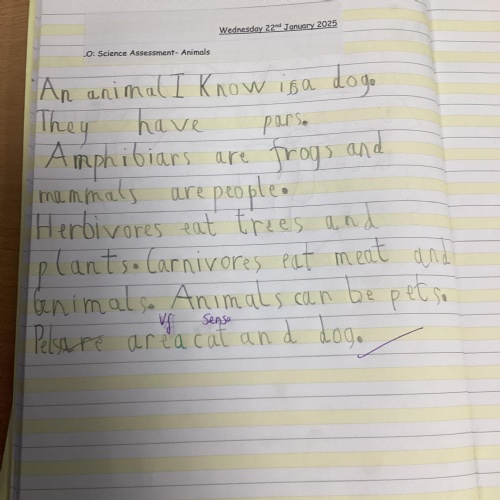 Wednesday 22nd January 2025
.O: Science Assessment- Animals
An animal I know is a dog.
They have pars.
Amphibians are frogs and
mammals are people.
Herbivores eat trees and
plants. Carnivores eat meat and
animals. Animals can be pets.
Vf Sense
Pets are a cat and dog.